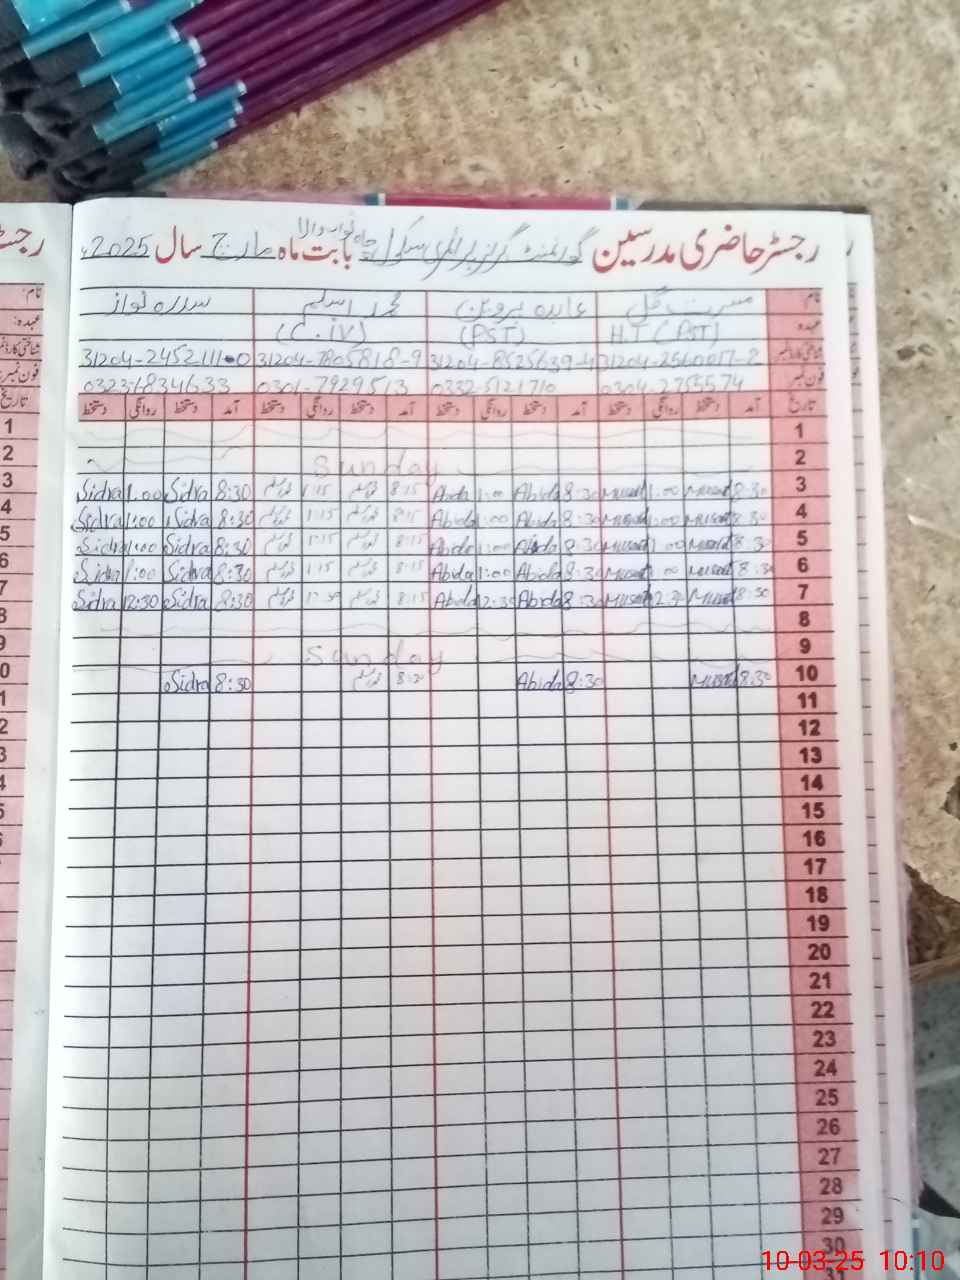 رجسٹر حاضری مدرسین گورنمنٹ گرلز پرائمری سکول چاہ نواب والا بابت ماہ مارچ سال 2025ء
نام مسرت گل عابدہ پروین محمد اسلم سدرہ نواز
عہدہ H.T (PST) (PST) (C.iv)
شناختی کارڈ نمبر 31204-8525639-4 31204-7805818-9 31204-2452111-0
فون نمبر 0304-2755574 0332-5121710 0301-7929513
تاریخ آمد دستخط روانگی دستخط آمد دستخط روانگی دستخط آمد دستخط روانگی دستخط آمد دستخط روانگی دستخط
1
2 Sunday
3 8:30 Musarat 1:00 Musarat 8:30 Abida 1:00 Abida 8:15 1:15 8:30 Sidra 1:00 Sidra
4 8:30 Musarat 1:00 Musarat 8:30 Abida 1:00 Abida 8:15 1:15 8:30 Sidra 1:00 Sidra
5 8:30 Musarat 1:00 Musarat 8:30 Abida 1:00 Abida 8:15 1:15 8:30 Sidra 1:00 Sidra
6 8:30 Musarat 1:00 Musarat 8:30 Abida 1:00 Abida 8:15 1:15 8:30 Sidra 1:00 Sidra
7 8:30 Musarat 12:30 Musarat 8:30 Abida 12:30 Abida 8:15 12:30 8:30 Sidra 12:30 Sidra
8
9 Sunday
10 8:30 Musarat 8:30 Abida 8:30 Sidra
11
12
13
14
15
16
17
18
19
20
21
22
23
24
25
26
27
28
29
30
31
10-03-25 10:10